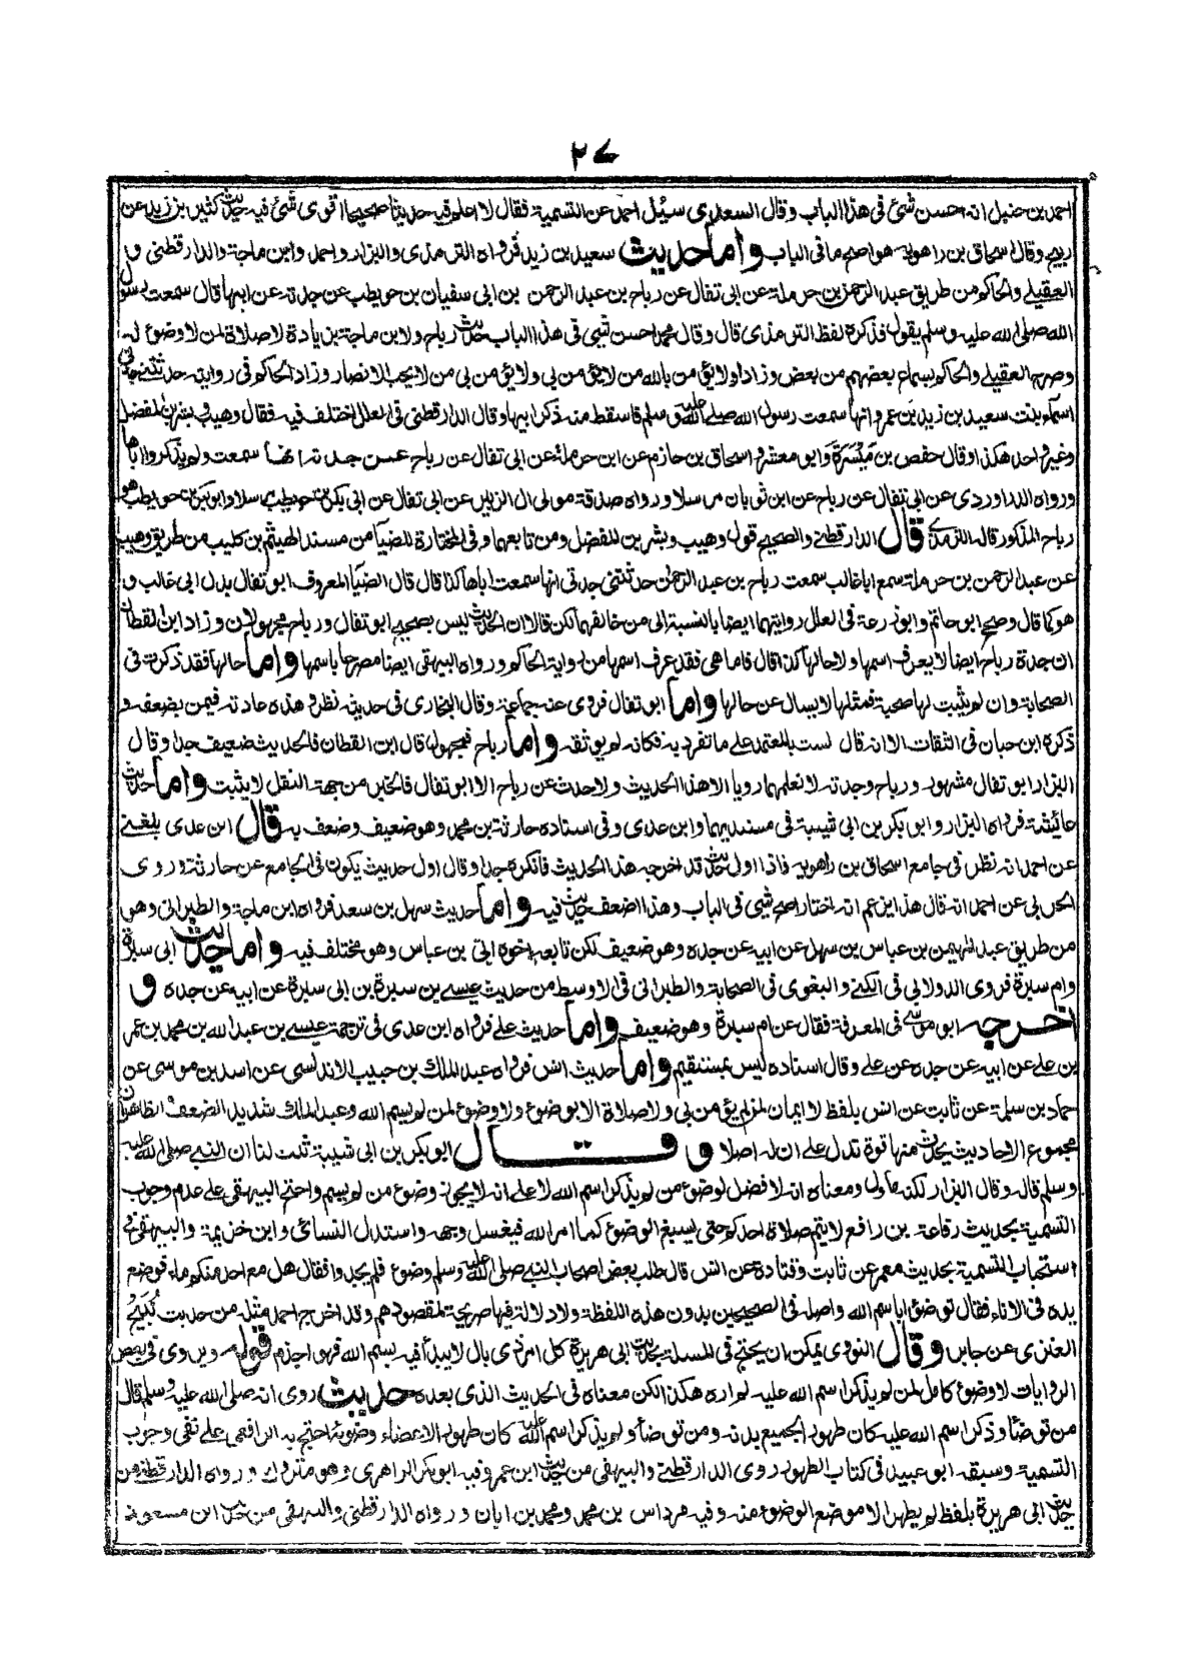 ٢٧
احمد بن حنبل انه احسن شئ فى هذا الباب وقال السعدى سئل احمد عن التسمية فقال لا اعلم فيه حديثا صحيحا اقوى شئ فيه حديث كثير بن زيد عن
ربيح وقال اسحاق بن راهويه هو اصح ما فى الباب واما حديث سعيد بن زيد فرواه الترمذى والبزار واحمد وابن ماجة والدارقطنى و
العقيلى والحاكم من طريق عبد الرحمن بن حرملة عن ابى ثفال عن رباح بن عبد الرحمن بن ابى سفيان بن حويطب عن جدته عن ابيها قال سمعت رسول
الله صلى الله عليه وسلم يقول فذكره لفظ الترمذى قال وقال محمد احسن شئ فى هذا الباب حديث رباح ولابن ماجة بزيادة لا صلاة لمن لا وضوء له
وصرح العقيلى والحاكم بسماع بعضهم من بعض وزاد ولا يؤمن بالله من لا يؤمن بى ولا يؤمن بى من لا يحب الانصار وزاد الحاكم فى روايته حدثتنى جدتى
اسماء بنت سعيد بن زيد بن عمرو انها سمعت رسول الله صلى الله عليه وسلم فاسقط منه ذكر ابيها وقال الدارقطنى فى العلل اختلف فيه فقال وهيب وبشر بن المفضل
وغير واحد هكذا وقال حفص بن ميسرة وابو معشر واسحاق بن حازم عن ابن حرملة عن ابى ثفال عن رباح عن جدته انها سمعت ولم يذكروا اباها
ورواه الدراوردى عن ابى ثفال عن رباح عن ابن ثوبان مرسلا ورواه صدقة مولى ال الزبير عن ابى ثفال عن ابى بكر بن حويطب مرسلا وابو بكر بن حويطب هو
رباح المذكور قاله الترمذى قال الدارقطنى والصحيح قول وهيب وبشر بن المفضل ومن تابعهما وفى المختارة للضيا من مسند الهيثم بن كليب من طريق وهيب
عن عبد الرحمن بن حرملة سمع ابا غالب سمعت رباح بن عبد الرحمن حدثتنى جدتى انها سمعت اباها كذا قال قال الضيا المعروف ابو ثفال بدل ابى غالب و
هو كما قال وصحح ابو حاتم وابو زرعة فى العلل روايتهما ايضا بالنسبة الى من خالفهما لكن قالا ان الحديث ليس بصحيح ابو ثفال ورباح مجهولان وزاد ابن القطان
ان جدة رباح ايضا لا يعرف اسمها ولا حالها كذا قال فاما هى فقد عرف اسمها من رواية الحاكم ورواه البيهقى ايضا مصرحا باسمها واما حالها فقد ذكرت فى
الصحابة وان لم يثبت لها صحبة فمثلها لا يسال عن حالها واما ابو ثفال فروى عنه جماعة وقال البخارى فى حديثه نظر وهذه عادته فيمن يضعفه و
ذكره ابن حبان فى الثقات الا انه قال لست بالمعتمد على ما تفرد به فكانه لم يوثقه واما رباح فمجهول قال ابن القطان فالحديث ضعيف جدا وقال
البزار ابو ثفال مشهور ورباح وجدته لا نعلمهما رويا الا هذا الحديث ولا حدث عن رباح الا ابو ثفال فالخبر من جهة النقل لا يثبت واما حديث
عائشة فرواه البزار وابو بكر بن ابى شيبة فى مسنديهما وابن عدى وفى اسناده حارثة بن محمد وهو ضعيف وضعف به قال ابن عدى بلغنى
عن احمد انه نظر فى جامع اسحاق بن راهويه فاذا اول حديث قد اخرجه هذا الحديث فانكره جدا وقال اول حديث يكون فى الجامع عن حارثة وروى
الحربى عن احمد انه قال هذا يزعم انه اختار اصح شئ فى الباب وهذا اضعف حديث فيه واما حديث سهل بن سعد فرواه ابن ماجة والطبرانى وهو
من طريق عبد المهيمن بن عباس بن سهل عن ابيه عن جده وهو ضعيف لكن تابعه اخوه ابى بن عباس وهو مختلف فيه واما حديث ابى سبرة
وام سبرة فروى الدولابى فى الكنى والبغوى فى الصحابة والطبرانى فى الاوسط من حديث عيسى بن سبرة بن ابى سبرة عن ابيه عن جده و
اخرجه ابو موسى فى المعرفة فقال عن ام سبرة وهو ضعيف واما حديث على فرواه ابن عدى فى ترجمة عيسى بن عبد الله بن محمد بن عمر
بن على عن ابيه عن جده عن على وقال اسناده ليس بمستقيم واما حديث انس فرواه عبد الملك بن حبيب الاندلسى عن اسد بن موسى عن
حماد بن سلمة عن ثابت عن انس بلفظ لا ايمان لمن لم يؤمن بى ولا صلاة الا بوضوء ولا وضوء لمن لم يسم الله وعبد الملك شديد الضعف والظاهر ان
مجموع الاحاديث يحدث منها قوة تدل على ان له اصلا وقال ابو بكر بن ابى شيبة ثبت لنا ان النبى صلى الله عليه
وسلم قاله وقال البزار لكنه ماول ومعناه انه لا فضل لوضوء من لم يذكر اسم الله لا على انه لا يجوز وضوء من لم يسم واحتج البيهقى على عدم وجوب
التسمية بحديث رفاعة بن رافع لا يتم صلاة احدكم حتى يسبغ الوضوء كما امر الله فيغسل وجهه واستدل النسائى وابن خزيمة والبيهقى فى
استحباب التسمية بحديث معمر عن ثابت وقتادة عن انس قال طلب بعض اصحاب النبى صلى الله عليه وسلم وضوء فلم يجدوا فقال هل مع احد منكم ماء فوضع
يده فى الاناء فقال توضئوا باسم الله واصله فى الصحيحين بدون هذه اللفظة ولا دلالة فيها صريحة لمقصودهم وقد اخرج احمد مثله من حديث نبيح
العنزى عن جابر وقال النووى يمكن ان يحتج فى المسئلة بحديث ابى هريرة كل امر ذى بال لا يبدأ فيه ببسم الله فهو اجذم قوله ويروى فى بعض
الروايات لا وضوء كامل لمن لم يذكر اسم الله عليه لم اره هكذا لكن معناه فى الحديث الذى بعده حديث روى انه صلى الله عليه وسلم قال
من توضأ وذكر اسم الله عليه كان طهورا لجميع بدنه ومن توضأ ولم يذكر اسم الله عليه كان طهورا لاعضاء وضوئه احتج به الرافعى على نفى وجوب
التسمية وسبقه ابو عبيد فى كتاب الطهور روى الدارقطنى والبيهقى من حديث ابن عمر وفيه ابو بكر الداهرى وهو متروك ورواه الدارقطنى من
حديث ابى هريرة بلفظ لم يطهر الا موضع الوضوء منه وفيه مرداس بن محمد ومحمد بن ابان ورواه الدارقطنى والبيهقى من حديث ابن مسعود